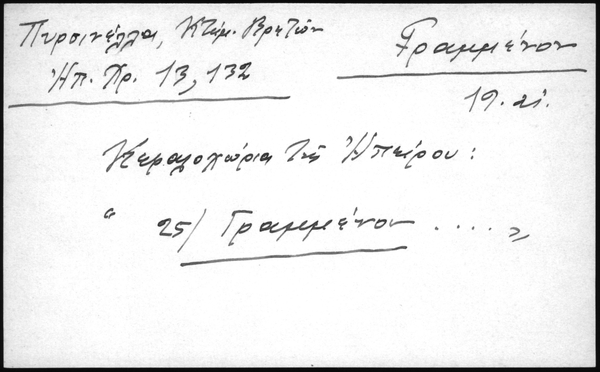 Πυρσινέλλα, Κτημ. Βρετών
Ἠπ. Χρ. 13, 132
Γραμμένον
19. αἰ.
Κεφαλοχώρια τῆς Ἠπείρου:
" 25/ Γραμμένον ..... "